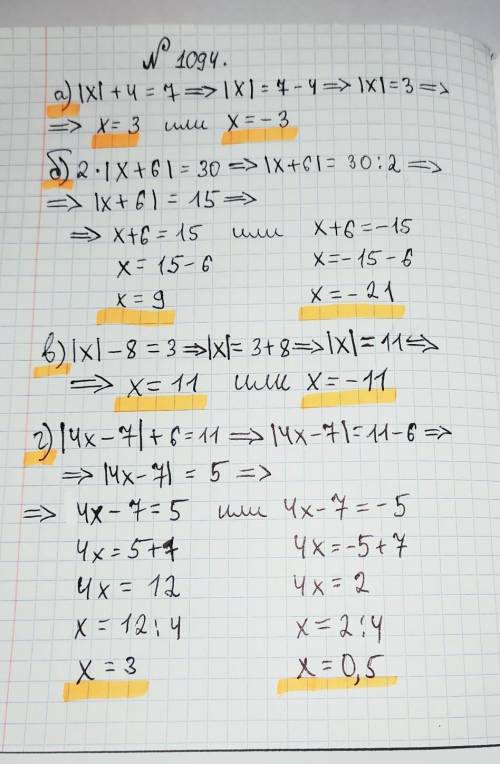 № 1094.
а) |x| + 4 = 7 => |x| = 7 - 4 => |x| = 3 =>
=> x = 3 или x = - 3
б) 2 · |x + 6| = 30 => |x+6| = 30 : 2 =>
=> |x + 6| = 15 =>
=> x+6 = 15 или x+6 = -15
x = 15 - 6 x = -15 - 6
x = 9 x = - 21
в) |x| - 8 = 3 => |x| = 3 + 8 => |x| = 11 =>
=> x = 11 или x = -11
г) |4x - 7| + 6 = 11 => |4x - 7| = 11 - 6 =>
=> |4x - 7| = 5 =>
=> 4x - 7 = 5 или 4x - 7 = - 5
4x = 5 + 7 4x = -5 + 7
4x = 12 4x = 2
x = 12 : 4 x = 2 : 4
x = 3 x = 0,5